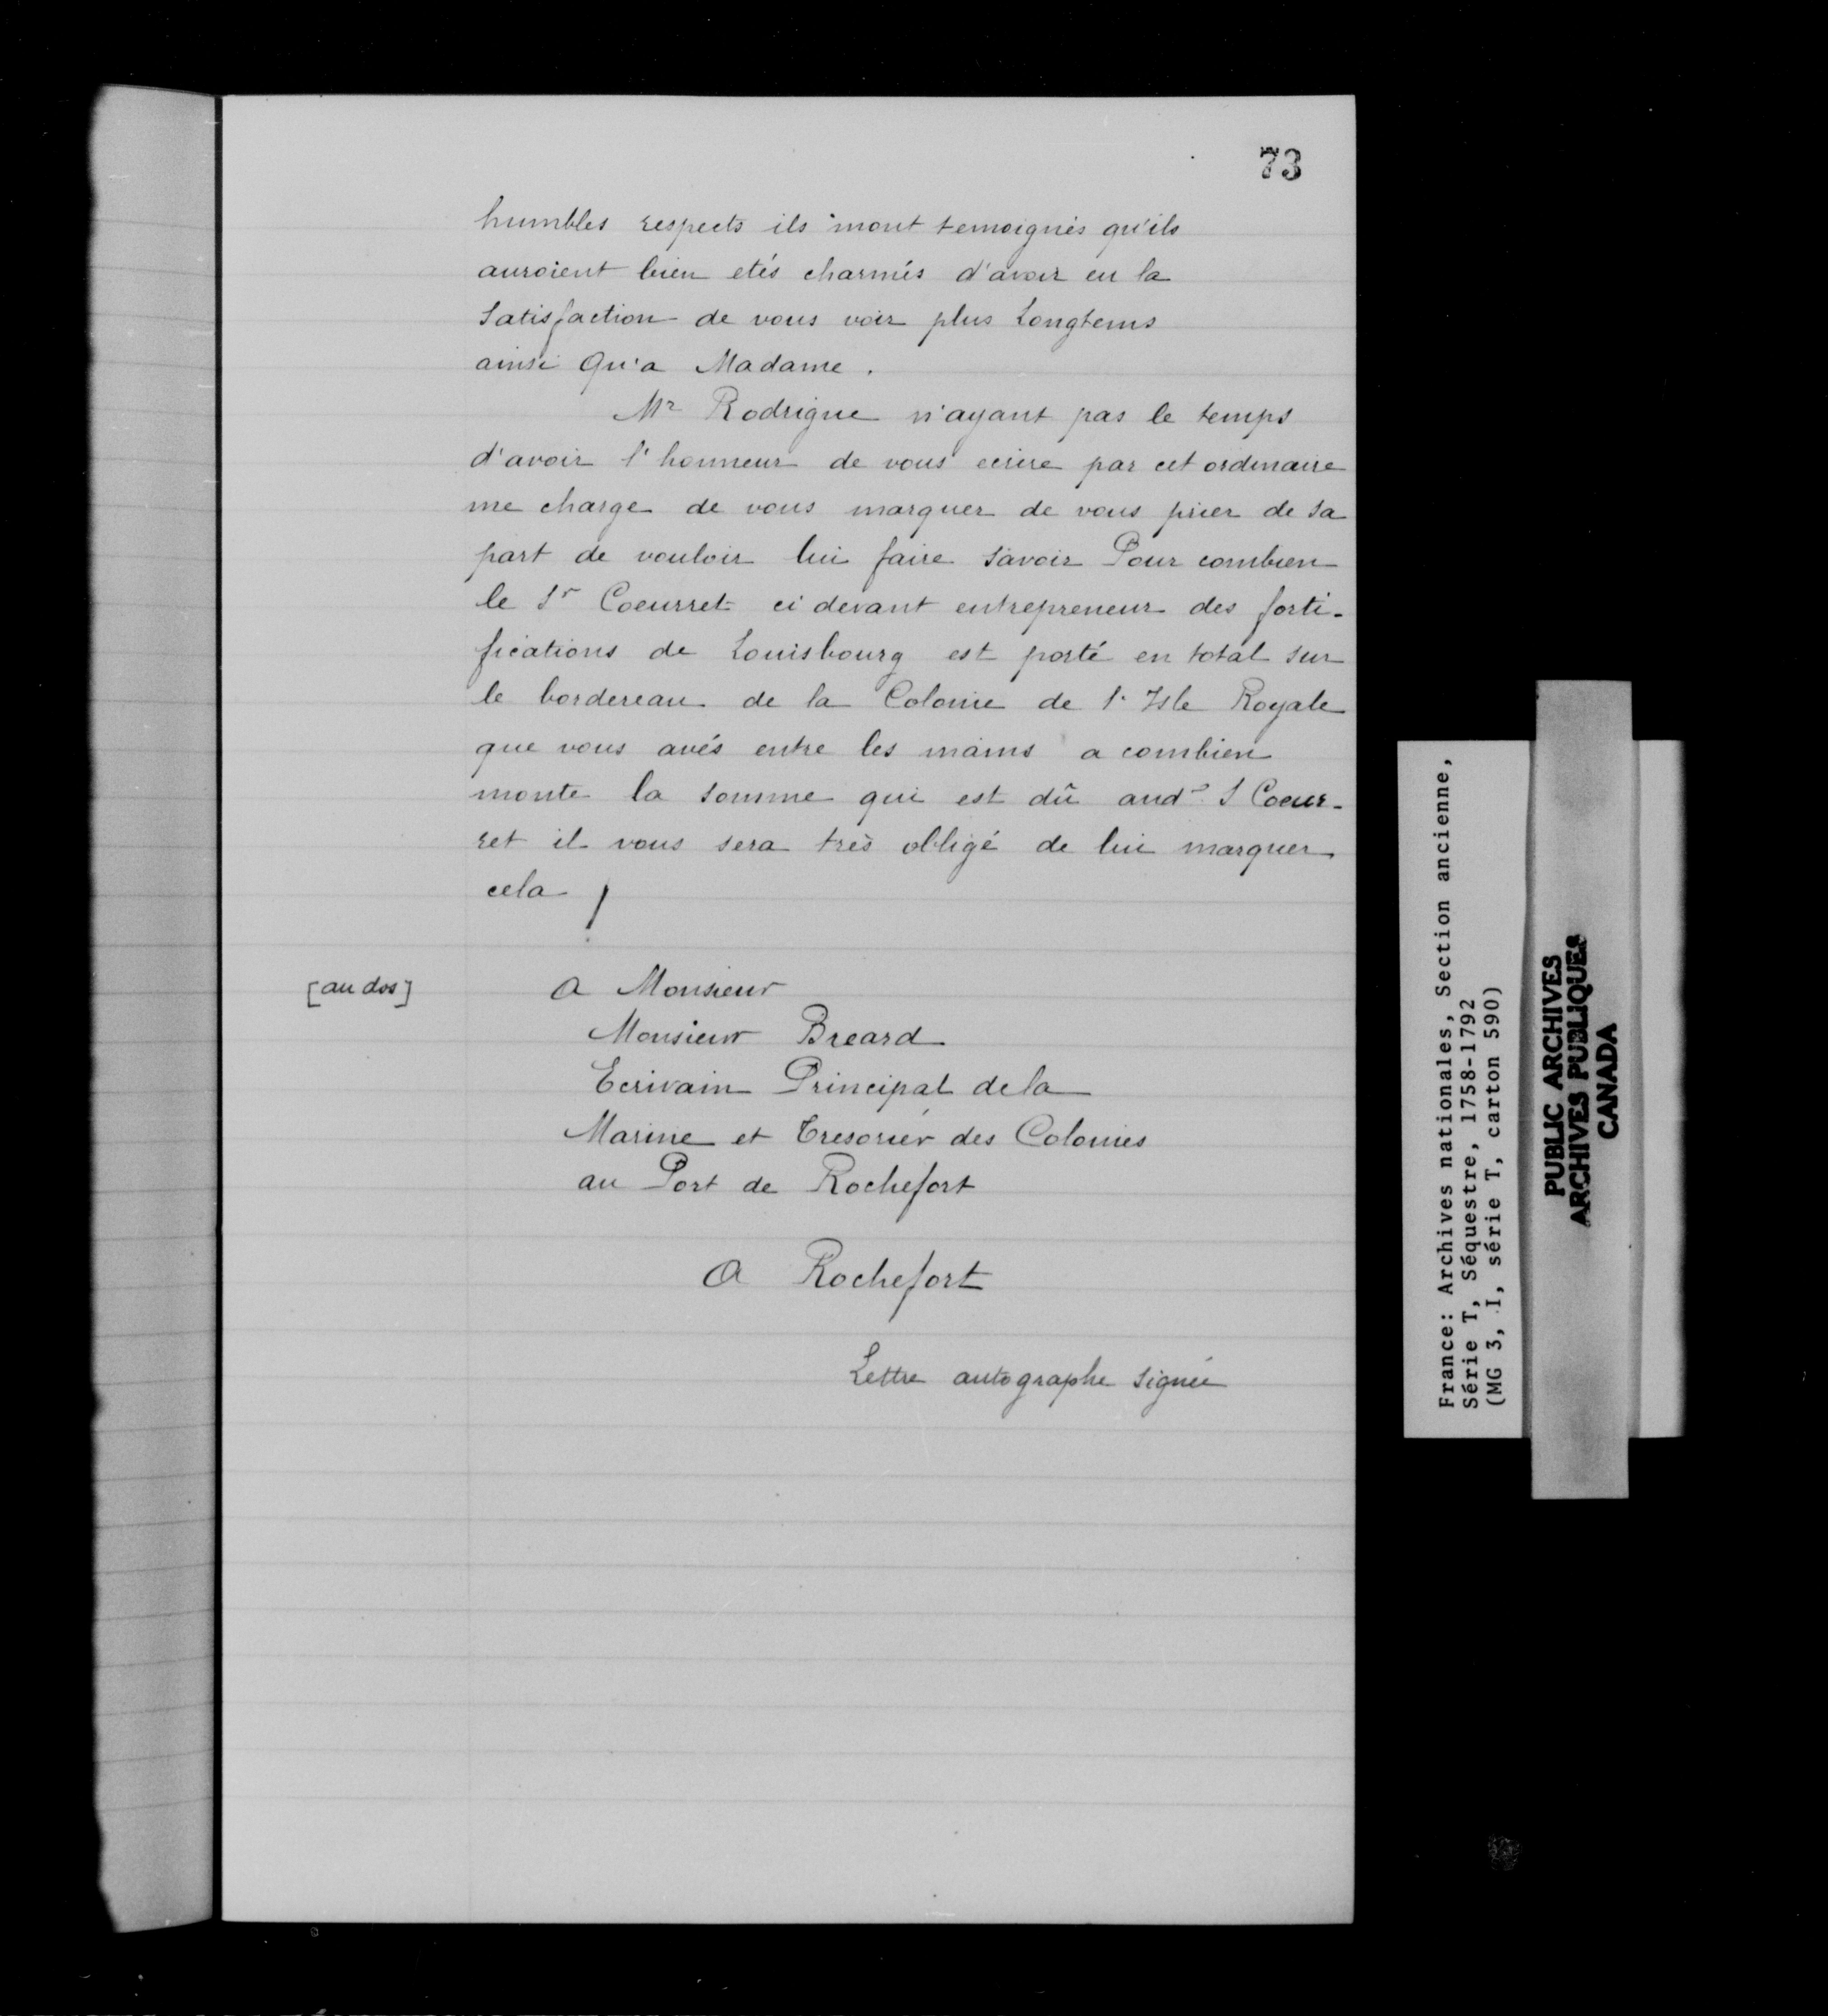 73
humbles respects ils m'ont temoignés qu'ils
auroient bien etés charmés d'avoir eu la
Satisfaction de vous voir plus Longtems
ainsi Qu'a Madame.
Mr Rodrigue n'ayant pas le temps
d'avoir l'honneur de vous ecrire par cet ordinaire
me charge de vous marquer de vous prier de sa
part de vouloir lui faire savoir Pour combien
le Sr Coeurret ci devant entrepreneur des forti-
fications de Louisbourg est porté en total sur
le bordereau de la Colonie de l'Isle Royale
que vous avés entre les mains a combien
monte la somme qui est dû aud. S Coeur-
ret il vous sera très obligé de lui marquer
cela
[au dos]
A Monsieur
Monsieur Breard
Ecrivain Principal de la
Marine et Tresorier des Colonies
au Port de Rochefort
A Rochefort
Lettre autographe signée
France: Archives nationales, Section ancienne,
Série T, Séquestre, 1758-1792
(MG 3, I, série T, carton 590)
PUBLIC ARCHIVES
ARCHIVES PUBLIQUES
CANADA